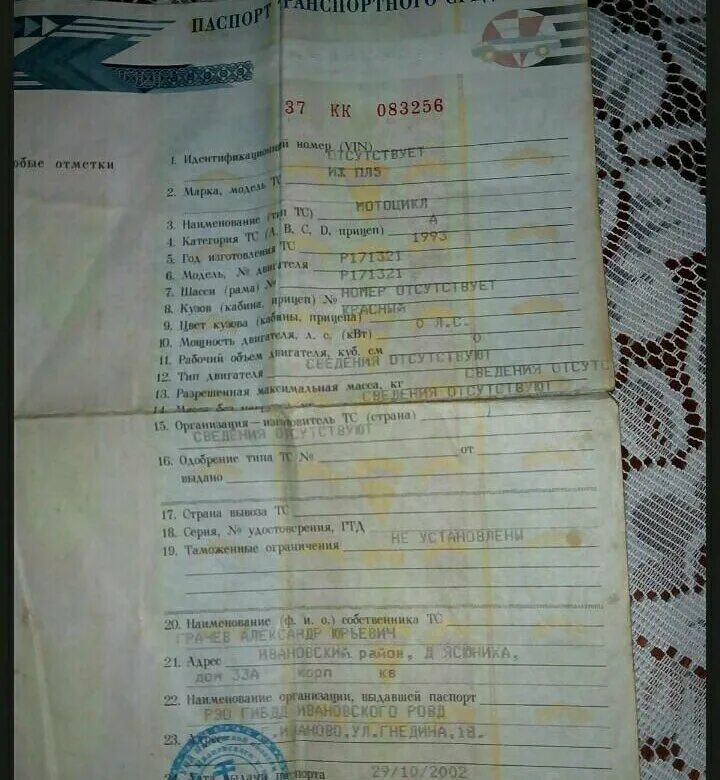 ПАСПОРТ ТРАНСПОРТНОГО
37 КК 083256
обые отметки
1. Идентификационный номер (VIN)
ОТСУТСТВУЕТ
2. Марка, модель ТС ИЖ ПЛ5
3. Наименование (тип ТС) МОТОЦИКЛ
4. Категория ТС (A, B, C, D, прицеп) А
5. Год изготовления ТС 1993
6. Модель, № двигателя Р171321
7. Шасси (рама) № Р171321
8. Кузов (кабина, прицеп) № НОМЕР ОТСУТСТВУЕТ
9. Цвет кузова (кабины, прицепа) КРАСНЫЙ
10. Мощность двигателя, л. с. (кВт) 0 Л.С.
11. Рабочий объем двигателя, куб. см 0
12. Тип двигателя СВЕДЕНИЯ ОТСУТСТВУЮТ
13. Разрешенная максимальная масса, кг СВЕДЕНИЯ ОТСУТС
14. Масса без СВЕДЕНИЯ ОТСУТСТВУЮТ
15. Организация—изготовитель ТС (страна)
СВЕДЕНИЯ ОТСУТСТВУЮТ
16. Одобрение типа ТС № от
выдано
17. Страна вывоза ТС
18. Серия, № удостоверения, ГТД
19. Таможенные ограничения НЕ УСТАНОВЛЕНЫ
20. Наименование (ф. и. о.) собственника ТС
ГРАЧЕВ АЛЕКСАНДР ЮРЬЕВИЧ
21. Адрес ИВАНОВСКИЙ район, Д ЯСЮНИКА,
дом 33А корп кв
22. Наименование организации, выдавшей паспорт
РЭО ГИБДД ИВАНОВСКОГО РОВД
23. Адрес .ИВАНОВО,УЛ.ГНЕДИНА,18.
24. Дата выдачи паспорта 29/10/2002